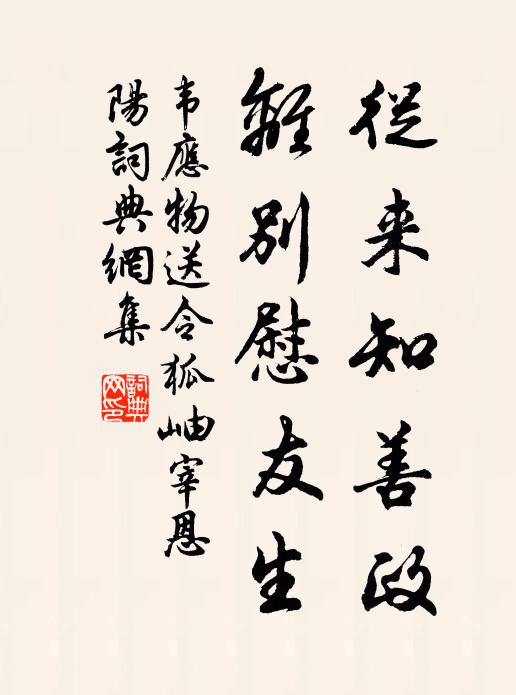 從来知善政
離别慰友生
韦應物送令狐岫宰恩
陽詞典網集
詞典
网印